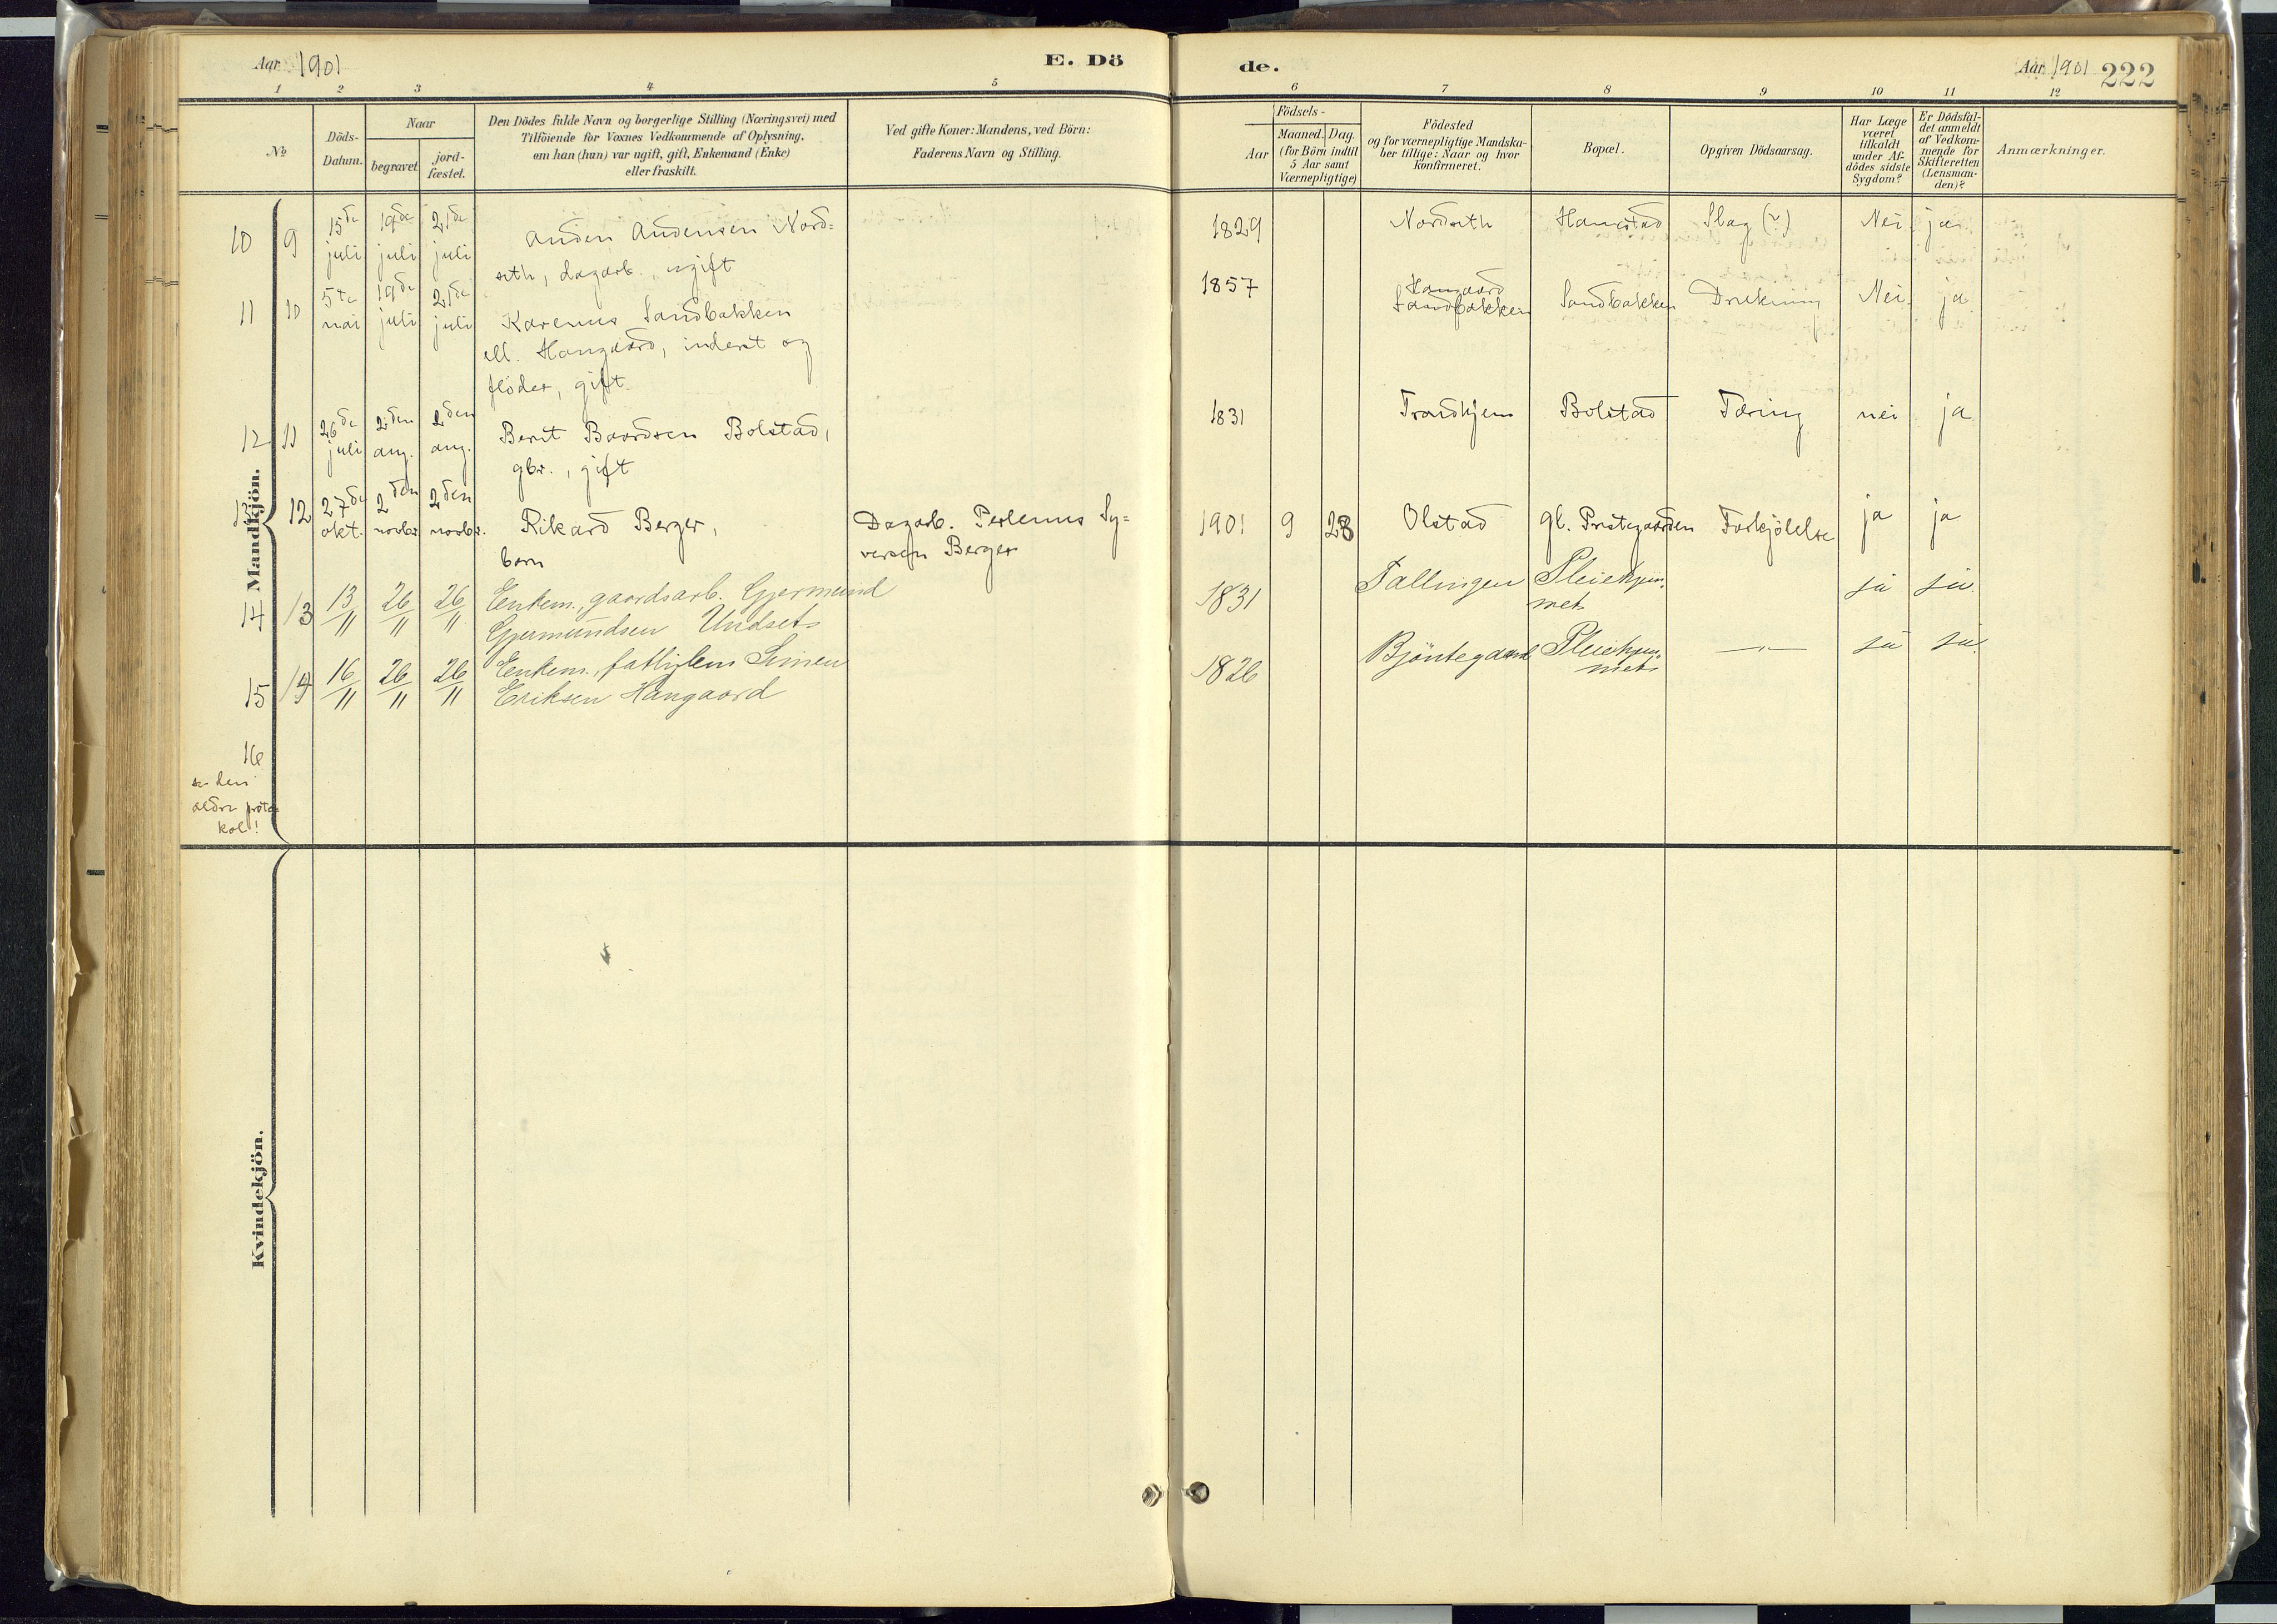 Aar 1901
E. Dö
de.
Aar 1901 222
1 2 3 4 5 6 7 8 9 10 11 12
No
Döds-
Datum.
Naar
begravet
jord-
fæstet.
Den Dödes fulde Navn og borgerlige Stilling (Næringsvei) med
Tilföiende for Voxnes Vedkommende af Oplysning,
om han (hun) var ugift, gift, Enkemand (Enke)
eller fraskilt.
Ved gifte Koner: Mandens, ved Börn:
Faderens Navn og Stilling.
Födsels-
Aar
Maaned. Dag.
(for Börn indtil
5 Aar samt
Værnepligtige)
Födested
og for værnepligtige Mandska-
ber tillige: Naar og hvor
konfirmeret.
Bopæl.
Opgiven Dödsaarsag.
Har Læge
været
tilkaldt
under Af-
dödes sidste
Sygdom?
Er Dödsfal-
det anmeldt
af Vedkom-
mende for
Skifteretten
(Lensman-
den)?
Anmærkninger.
Mandkjön.
10 9 15de juli 19de juli 21de juli Anders Andersen Nord= 1829 Nordseth Hamstad Slag (?) Nei ja
seth, dagarb., ugift
11 10 5te mai 19de juli 21de juli Karenus Sandbakken 1857 Hangaard Sandbakken Sandbakken Drukning Nei ja
ell. Hangaard, inderst og
flöder, gift.
12 11 26de juli 2den aug. 2den aug. Bernt Baardsen Bolstad, 1831 Trondhjem Bolstad Tæring nei ja
gbr., gift
13 12 27de okt. 2den novbr. 2den novbr. Rikard Berger, Dagarb. Perlenus Sy= 1901 9 28 Olstad gl. Prestegaarden Forkjölelse ja ja
barn versen Berger
14 13 13/11 26/11 26/11 Enkem., gaardsarb. Gjermund 1831 Tallingen Pleiehjem- ja ja.
Gjermundsen Undset met
15 14 16/11 26/11 26/11 Enkem., fattiglem Simen 1826 Bjöntegaard Pleiehjem- —"— ja ja.
Eriksen Hangaard met
16
se den
ældre proto=
kol!
Kvindekjön.